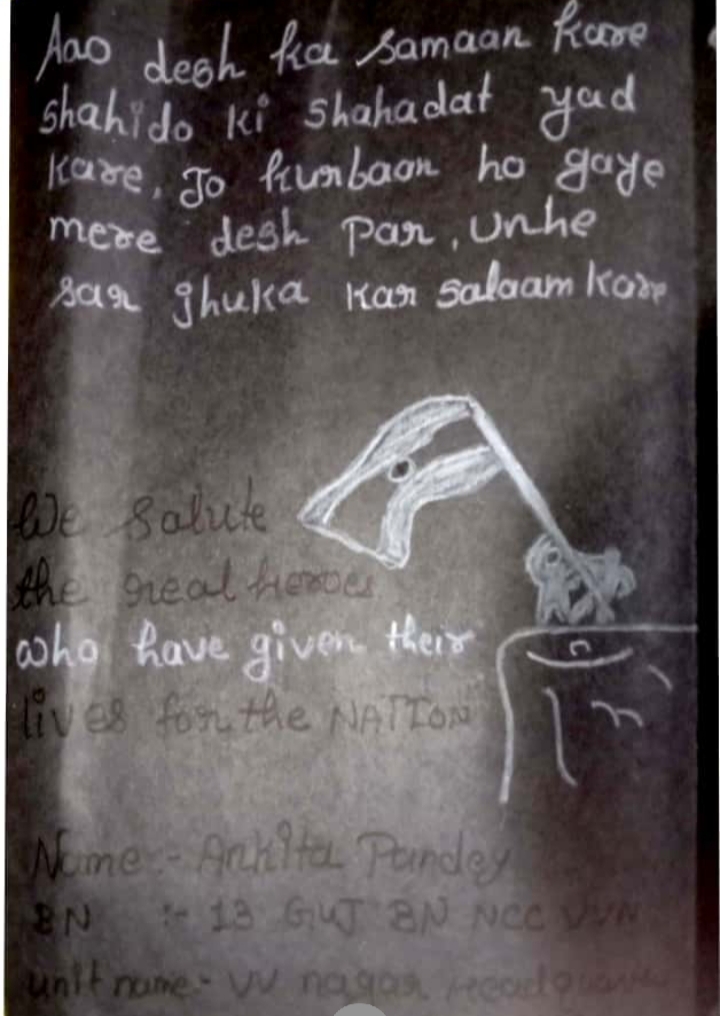 Aao desh ka samaan kare
shahido ki shahadat yad
kare, Jo kurbaan ho gaye
mere desh par, unhe
sar jhuka kar salaam kare
We salute
the real heroes
who have given their
lives for the NATION
Name:- Ankita Pandey
BN :- 13 GUJ BN NCC VVN
unit name:- VV nagar